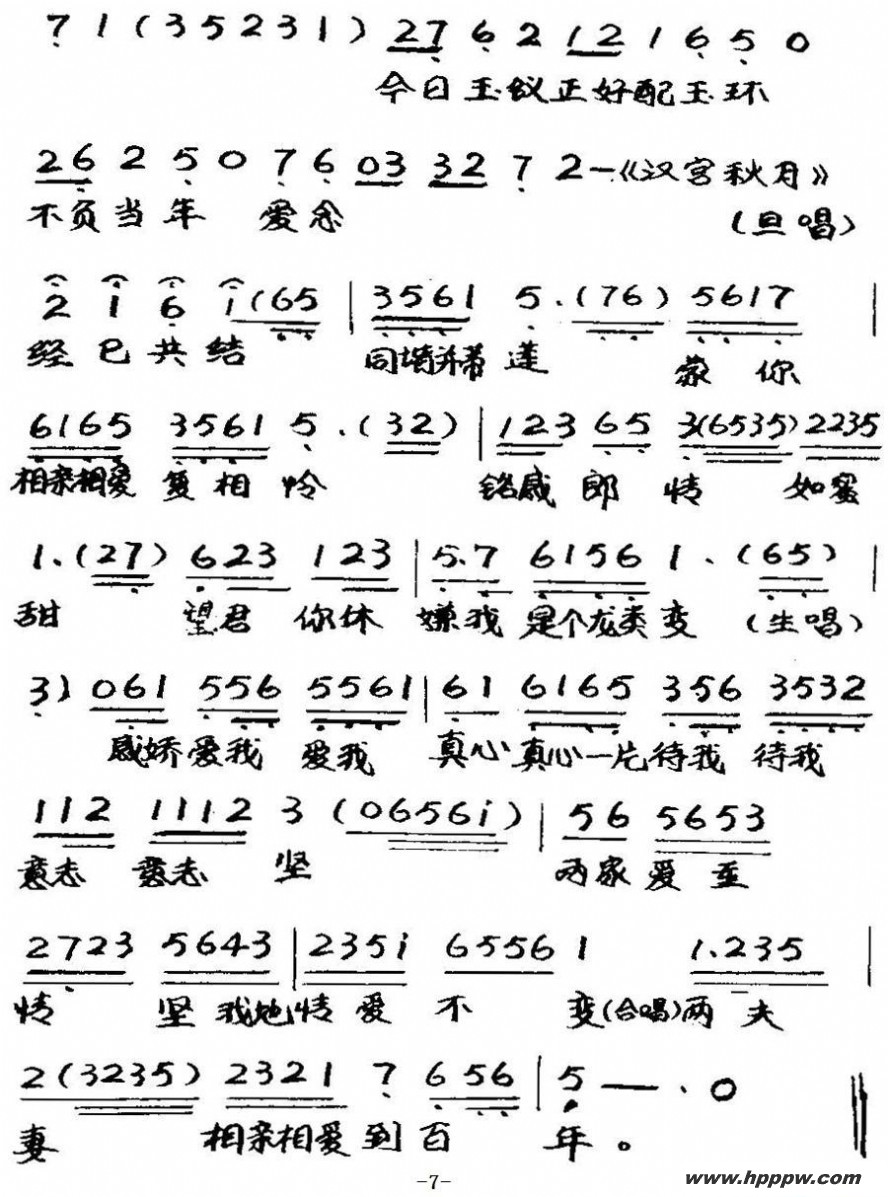 7 1 (35231) 27 6 2 12 1 6 5 0
今日玉蚁正好配玉环
26 2 5 0 7 6 03 32 7 2—《汉宫秋月》
不负当年 爱念 (旦唱)
2 1 6 i(65 | 3561 5.(76) 5617 |
经已共结 同埔并蒂莲 蒙你
6165 3561 5.(32) | 123 65 3(6535) 2235
相亲相爱 复相怜 铭感郎情 如蜜
1.(27) 623 123 | 5.7 6156 1.(65) |
甜 望君 你休 嫌我 是个龙类变 (生唱)
3) 061 556 5561 | 61 6165 356 3532
感娇爱我 爱我 真心真心一片待我 待我
112 1112 3 (0656i) | 56 5653
意志 意志 坚 两家爱至
2723 5643 | 235i 6556 1 1.235 |
情 坚我她情爱不 变(合唱)两夫
2(3235) 2321 7 6 56 | 5 — . 0
妻 相亲相爱到百 年。
-7-
www.hpppw.com